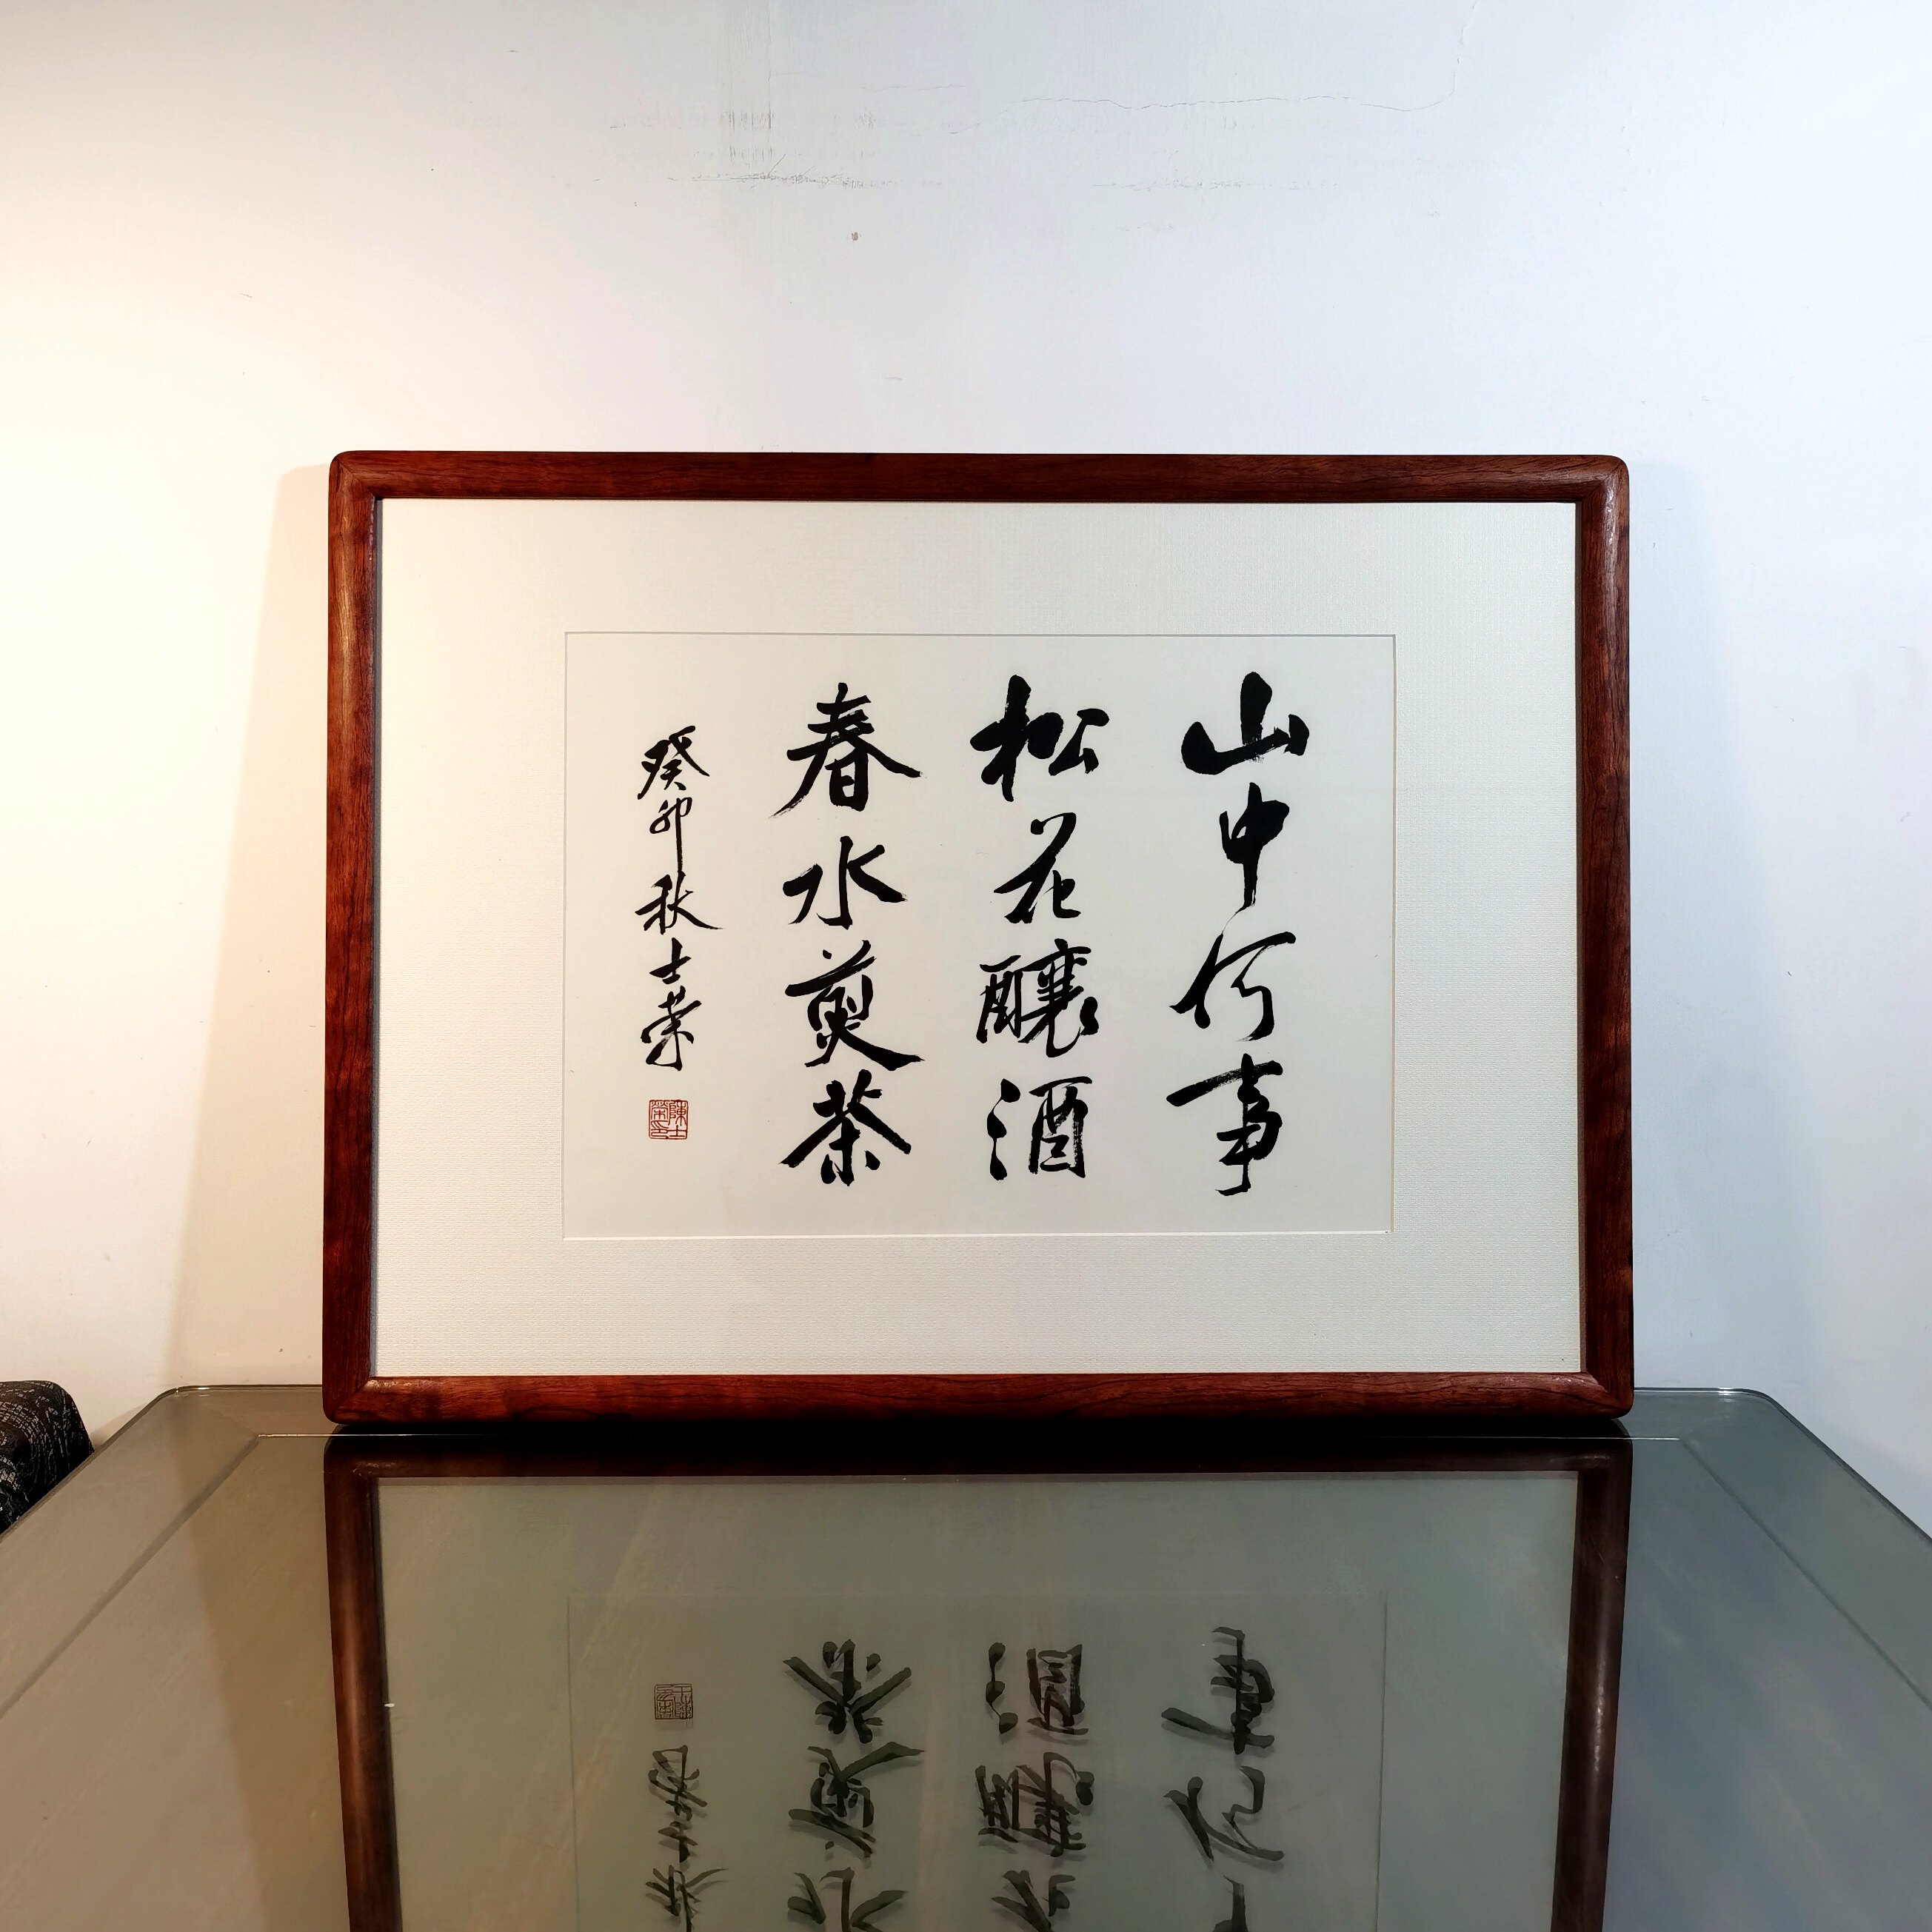 山中何事
松花釀酒
春水煎茶
癸卯秋士榮
陳士榮印